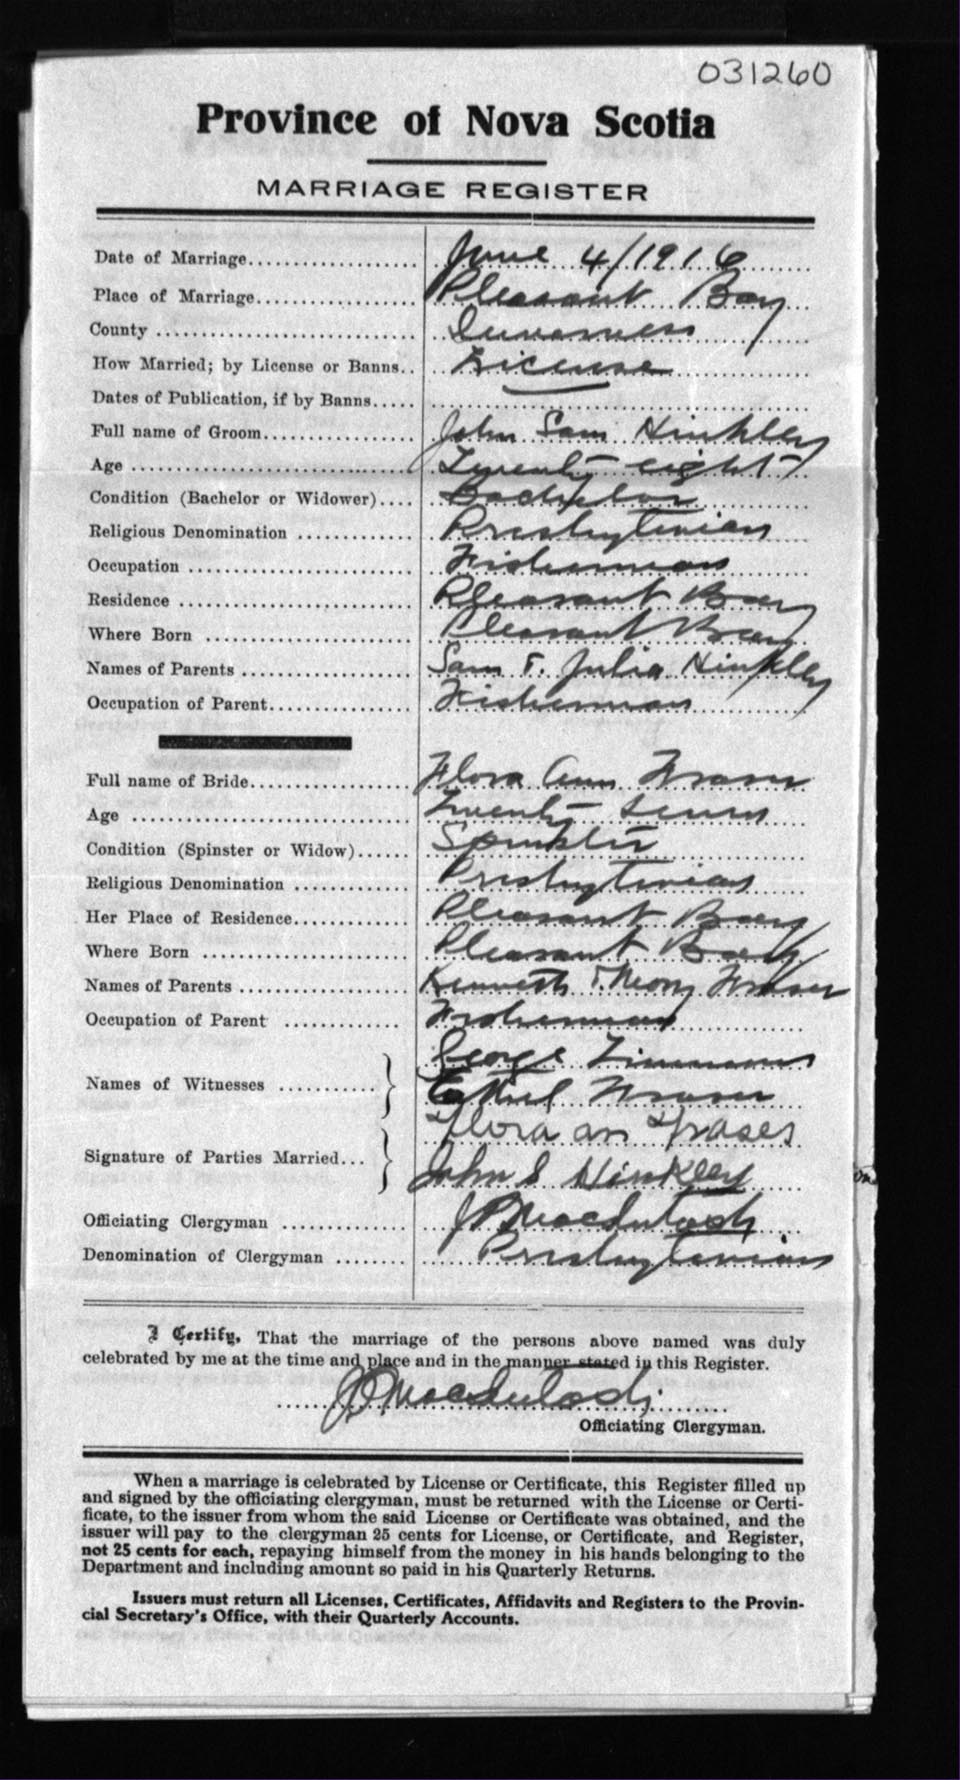 031260
Province of Nova Scotia
MARRIAGE REGISTER
Date of Marriage.................... June 4/1916
Place of Marriage.................. Pleasant Bay
County ................................. Inverness
How Married; by License or Banns.. License
Dates of Publication, if by Banns.....
Full name of Groom.................. John Sam Hinkley
Age ................................... Twenty eight
Condition (Bachelor or Widower).... Bachelor
Religious Denomination ............. Presbyterian
Occupation ........................... Fisherman
Residence ............................ Pleasant Bay
Where Born ........................ Pleasant Bay
Names of Parents .................... Sam & Julia Hinkley
Occupation of Parent................. Fisherman
Full name of Bride.................... Flora Ann Fraser
Age .................................. Twenty seven
Condition (Spinster or Widow)...... Spinster
Religious Denomination .............. Presbyterian
Her Place of Residence.............. Pleasant Bay
Where Born ......................... Pleasant Bay
Names of Parents .................... Kenneth & Fraser
Occupation of Parent .............. Fisherman
George Timmons
Names of Witnesses ...........
Ethel Fraser
Flora an Fraser
Signature of Parties Married...
John S Hinkley
Officiating Clergyman ............... J MacIntosh
Denomination of Clergyman ......... Presbyterian
I Certify, That the marriage of the persons above named was duly
celebrated by me at the time and place and in the manner stated in this Register.
J MacIntosh
Officiating Clergyman.
When a marriage is celebrated by License or Certificate, this Register filled up
and signed by the officiating clergyman, must be returned with the License or Certi-
ficate, to the issuer from whom the said License or Certificate was obtained, and the
issuer will pay to the clergyman 25 cents for License, or Certificate, and Register,
not 25 cents for each, repaying himself from the money in his hands belonging to the
Department and including amount so paid in his Quarterly Returns.
Issuers must return all Licenses, Certificates, Affidavits and Registers to the Provin-
cial Secretary's Office, with their Quarterly Accounts.